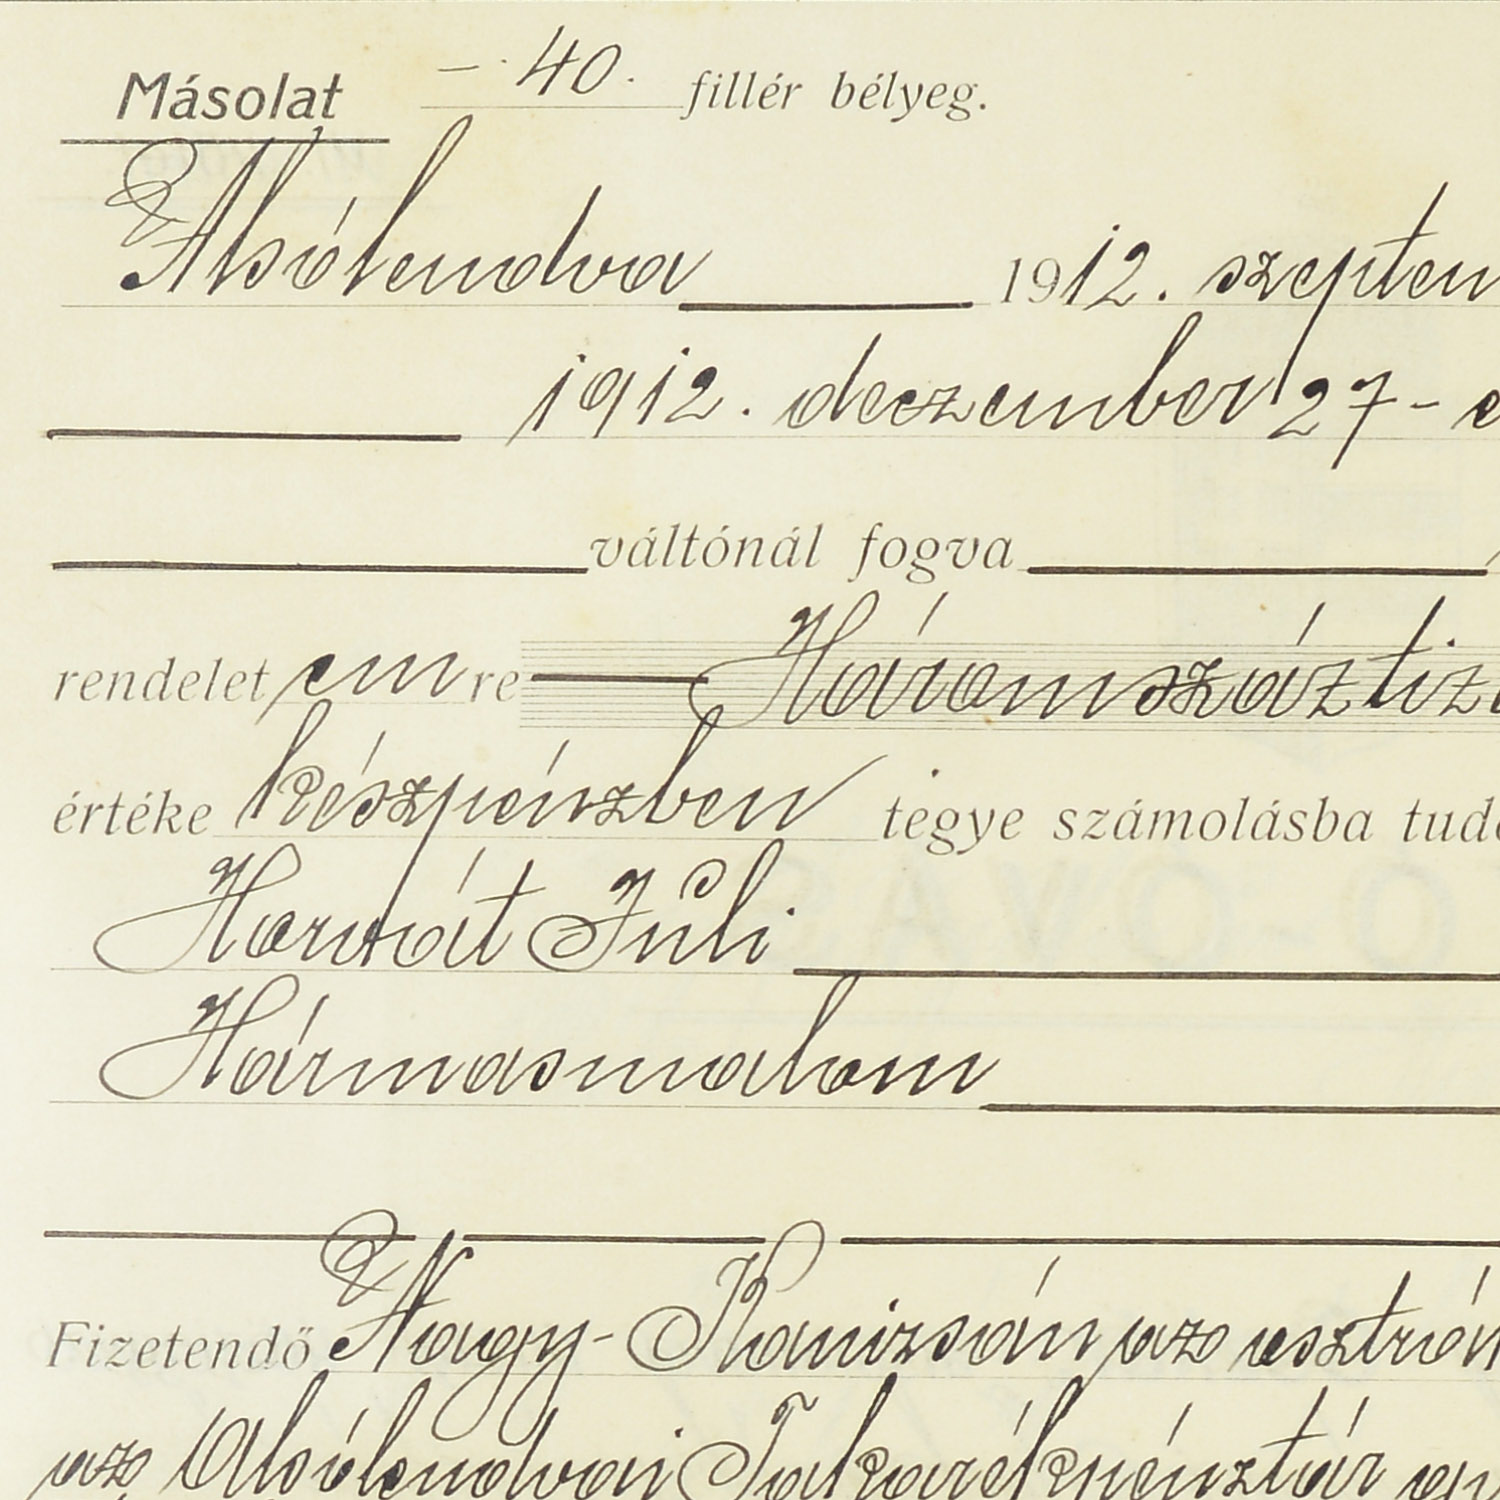 Másolat – 40. fillér bélyeg.
Alsólendva 1912. szeptem
1912. deczember 27-
váltónál fogva
rendelet em re Háromszáztiz
értéke készpénzben tegye számolásba
Horvát Juli
Hármasmalom
Fizetendő Nagy-Kanizsán az osztrák
az Alsólendvai Takarékpénztár